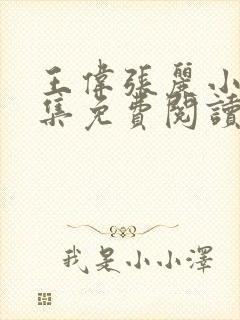 王偉張麗小
集免費閱讀
我是小小澤